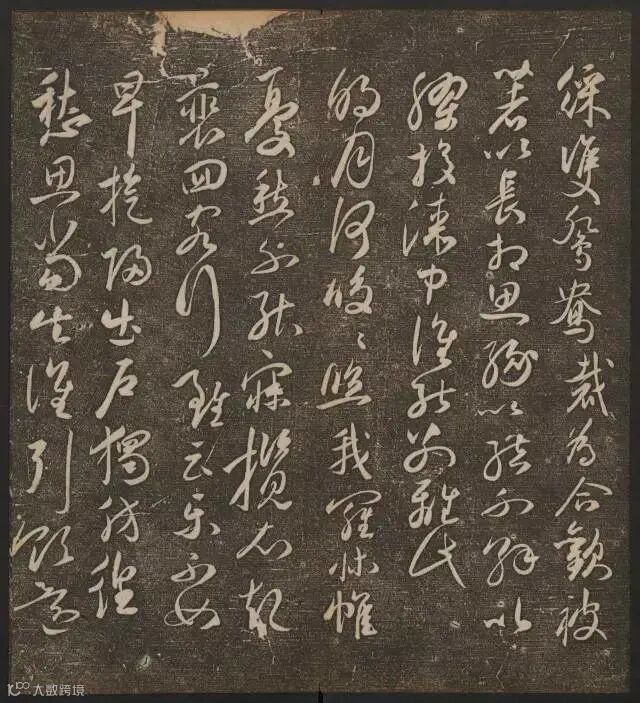 綵雙鴛鴦裁為合歡被
著以長相思緣以結不解以
膠投漆中誰能別離此
明月何皎〻照我羅床帷
憂愁不能寐攬衣起
裵回客行雖云樂不如
早旋歸出戶獨彷徨
愁思當告誰引領還
大数跨境